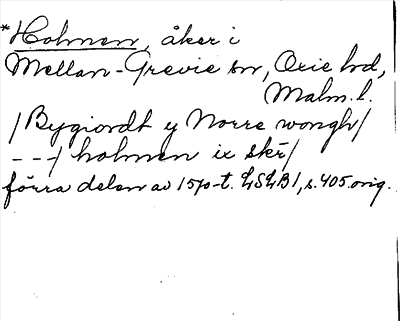 *Holmen, åker i
Mellan-Grevie sn, Oxie hd,
Malm. l.
/Bygiordt y Norre wongh/
---/ holmen ix skr/
förra delen av 1570-t. LSLB1, s. 405 orig.